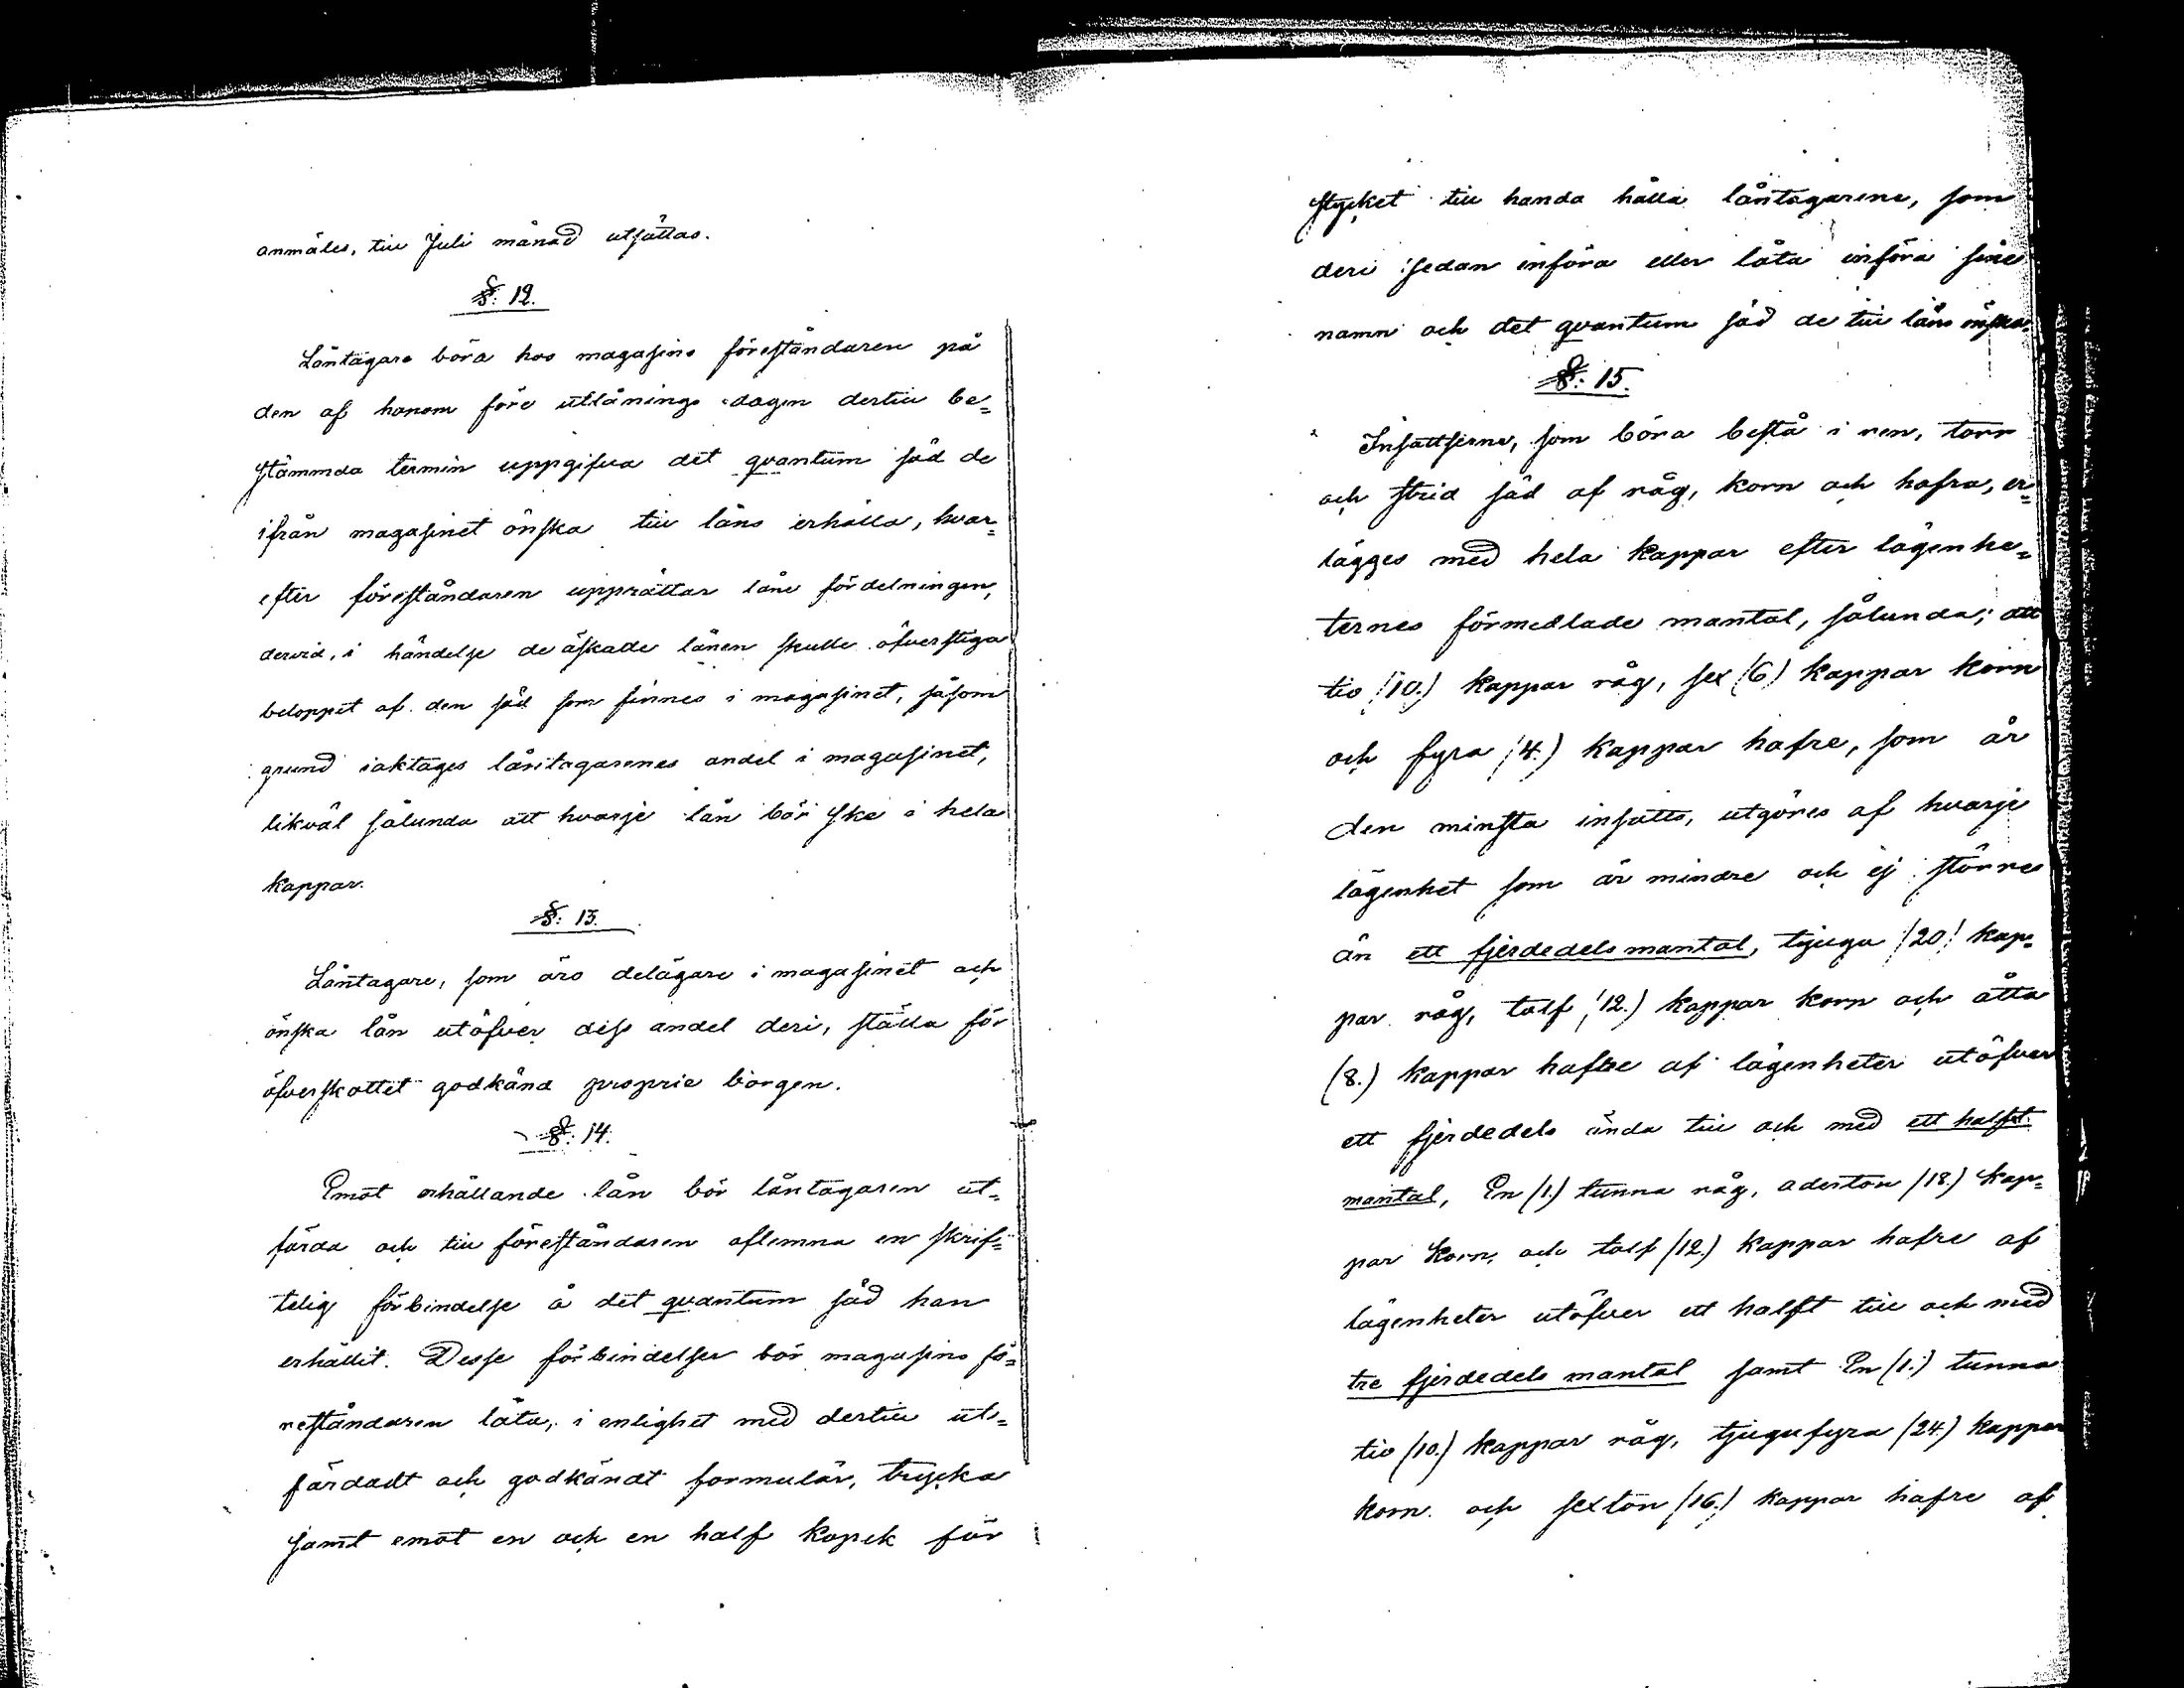 anmäles, till Juli månad utsättas.
§: 12.
Låntagare böra hos magasins föreståndaren på
den af honom före utlånings dagen dertill be=
stämmda termin uppgifva det qvantum säd de
ifrån magasinet önska till låns erhålla, hvar=
efter föreståndaren upprättar låne fördelningen,
dervid, i händelse de äskade lånen skulle öfverstiga
beloppet af den säd som finnes i magasinet, såsom
grund iaktages låntagarenes andel i magasinet,
likväl sålunda att hvarje lån bör ske i hela
kappar.
§: 13.
Låntagare, som äro delägare i magasinet och
önska lån utöfver dess andel deri, ställa för
öfverskottet godkänd proprie borgen.
§: 14.
Emot erhållande lån bör låntagaren ut=
färda och till föreståndaren aflemna en skrif=
telig förbindelse å det qvantum säd han
erhållit. Desse förbindelser bör magasins fö=
reståndaren låta, i enlighet med dertill ut=
färdadt och godkändt formulär, trycka
samt emot en och en half kopek för
stycket till handa hålla låntagarene, som
deri sedan införa eller låta införa sine
namn och det qvantum säd de till låns önska.
§: 15.
Insattserne, som böra bestå i ren, torr
och strid säd af råg, korn och hafra, er=
lägges med hela kappar efter lägenhe=
ternes förmedlade mantal, sålunda; att
tio (10.) kappar råg, sex (6) kappar korn
och fyra (4.) kappar hafre, som är
den minsta insatts, utgöres af hvarje
lägenhet som är mindre och ej större
än ett fjerdedels mantal, tjugu (20) kap=
par råg, tolf (12.) kappar korn och åtta
(8.) kappar hafre af lägenheter utöfver
ett fjerdedels ända till och med ett halft
mantal, En (1.) tunna råg, aderton (18.) kap=
par korn, och tolf (12.) kappar hafre af
lägenheter utöfver ett halft till och med
tre fjerdedels mantal samt En (1.) tunna
tio (10.) kappar råg, tjugufyra (24.) kappar
korn och sexton (16.) kappar hafre af